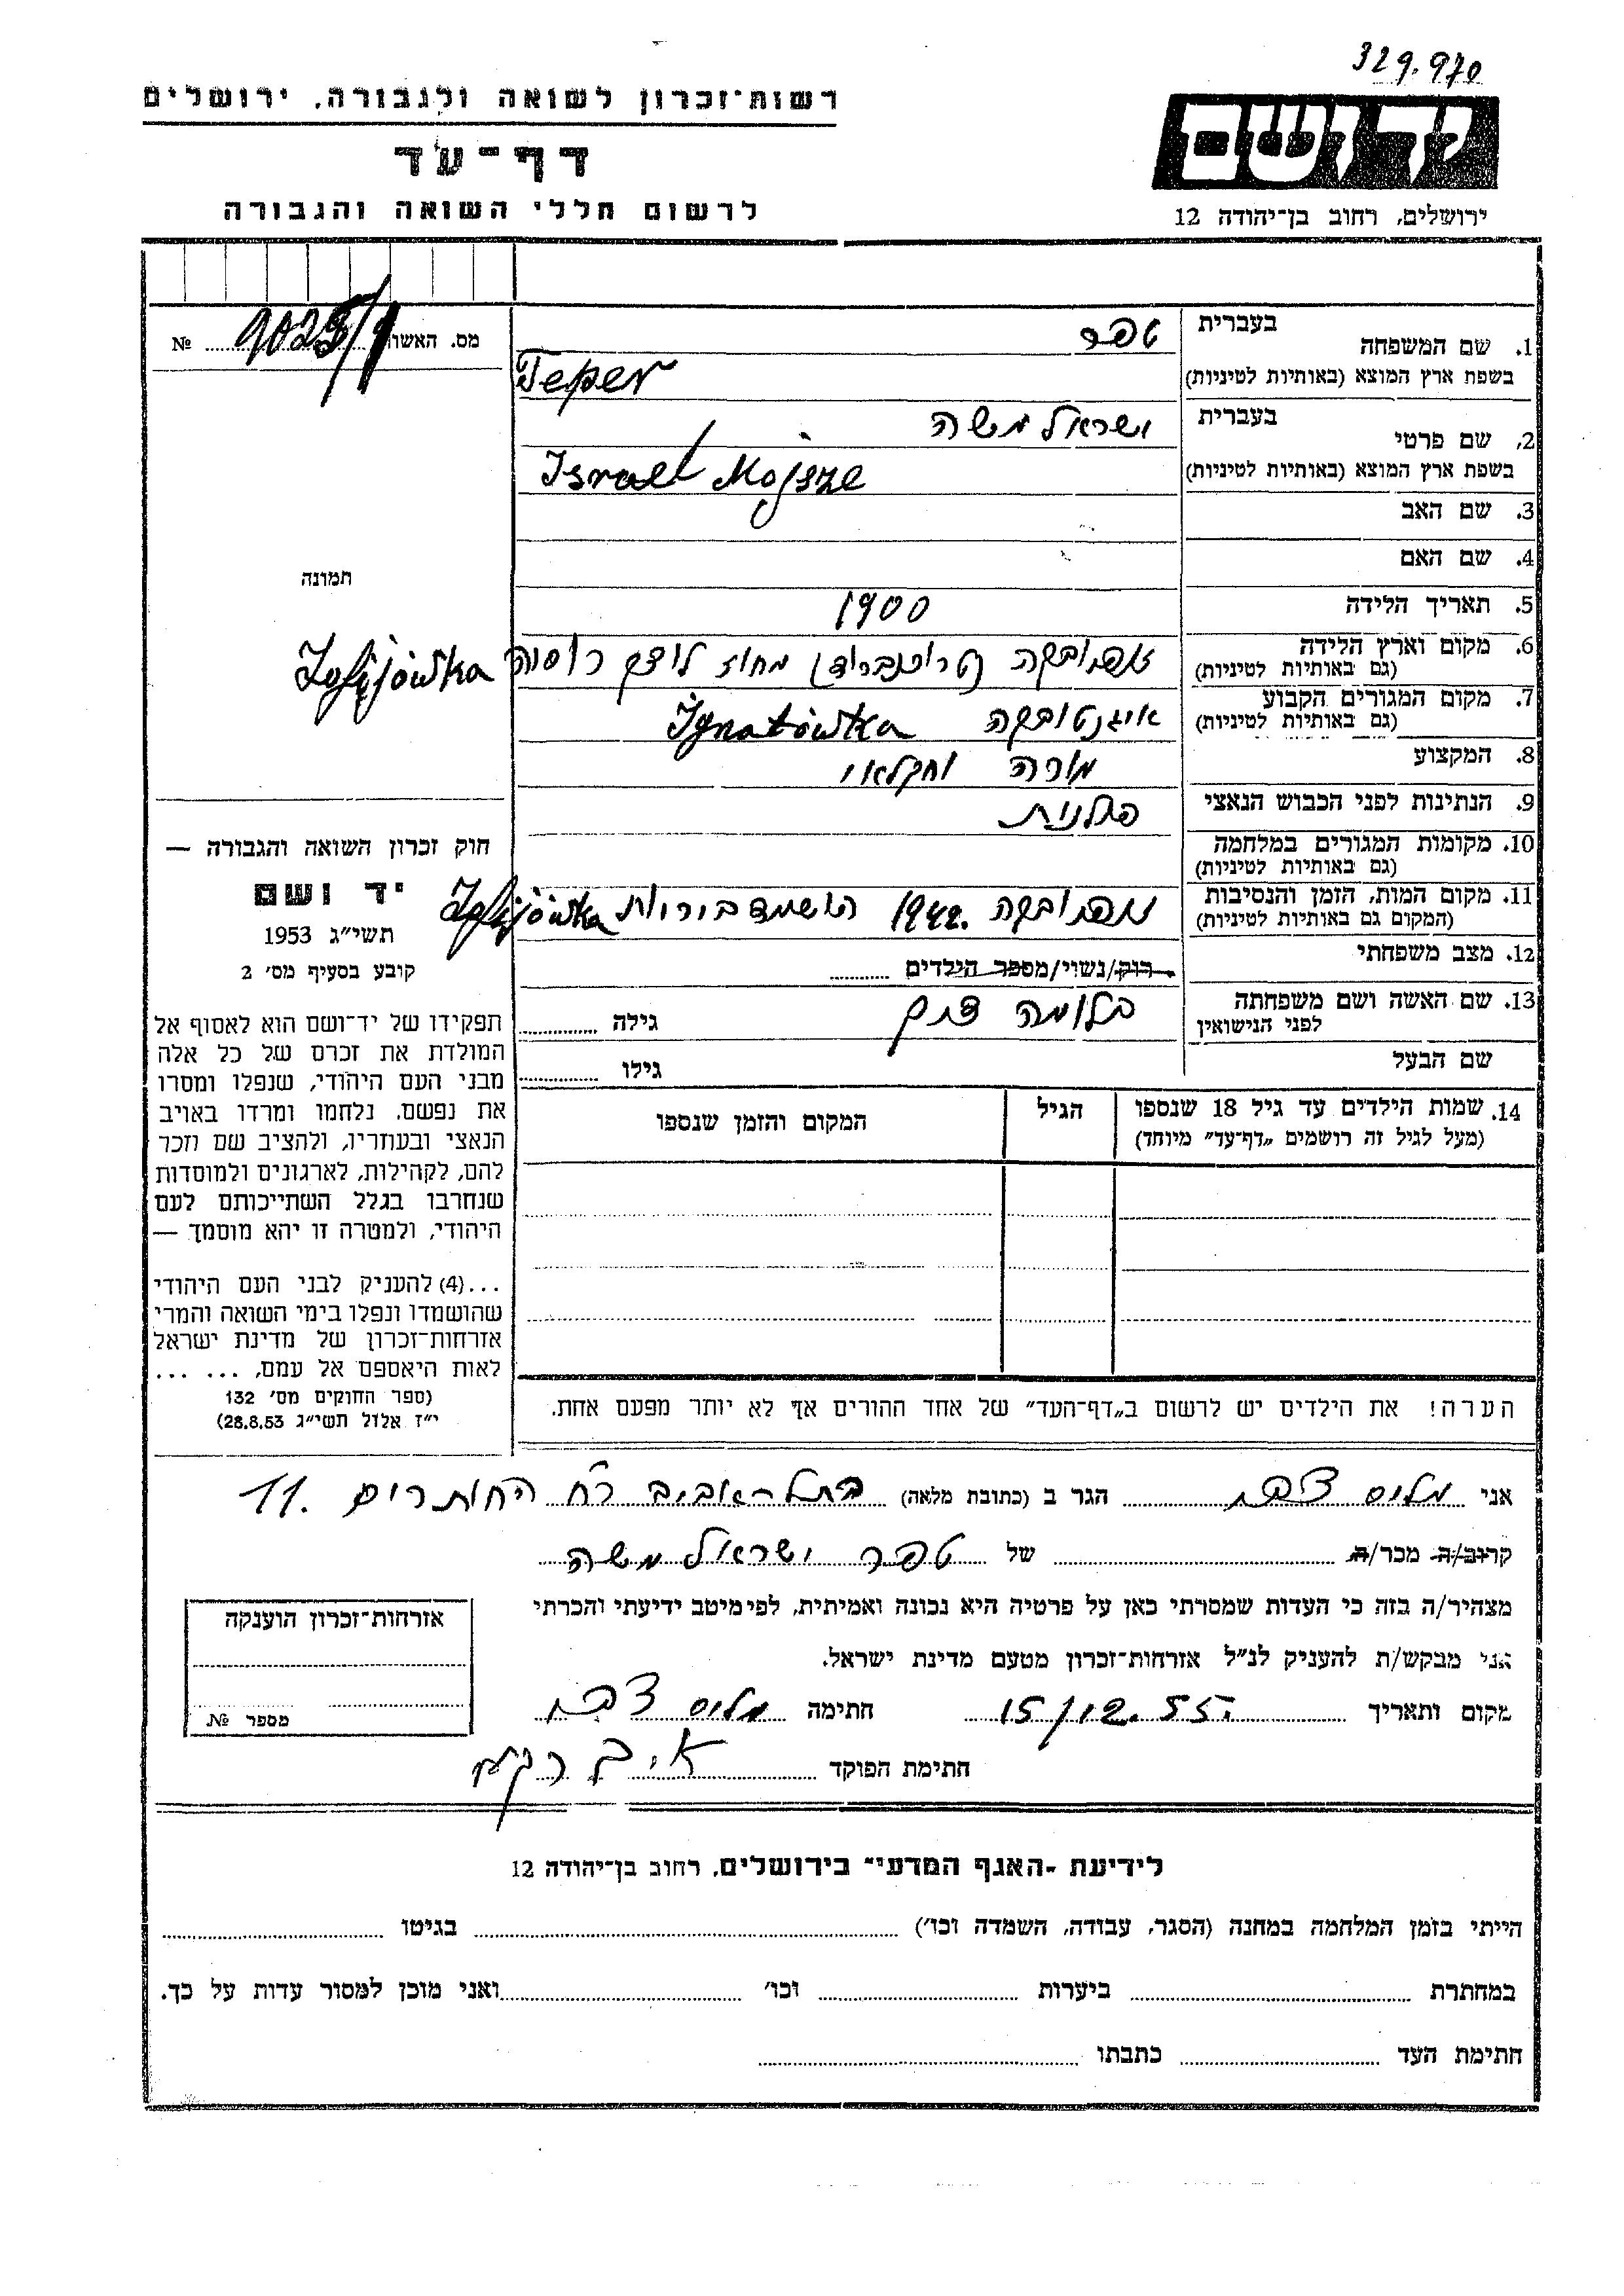 329.970
רשות-זכרון לשואה ולגבורה, ירושלים
דף-עד
לרשום חללי השואה והגבורה
יד ושם
ירושלים, רחוב בן-יהודה 12
מס. האשור № 1025/9
1. שם המשפחה
בעברית טפר
בשפת ארץ המוצא (באותיות לטיניות) Teper
2. שם פרטי
בעברית ישראל משה
בשפת ארץ המוצא (באותיות לטיניות) Israel Mojsze
3. שם האב
4. שם האם
5. תאריך הלידה 1900
6. מקום וארץ הלידה
(גם באותיות לטיניות) (טרוכנברוד) מחוז לוצק רוסיה Zofijówka
7. מקום המגורים הקבוע
(גם באותיות לטיניות) איגנטובקה Ignatówka
8. המקצוע מורה וחקלאי
9. הנתינות לפני הכבוש הנאצי פולנית
10. מקומות המגורים במלחמה
(גם באותיות לטיניות)
11. מקום המות, הזמן והנסיבות
(המקום גם באותיות לטיניות) 1942. הושמד ביריות Zofijówka
12. מצב משפחתי רוק/נשוי/מספר הילדים
13. שם האשה ושם משפחתה
לפני הנישואין בלומה גילה
שם הבעל גילו
14. שמות הילדים עד גיל 18 שנספו
(מעל לגיל זה רושמים „דף-עד” מיוחד)
הגיל
המקום והזמן שנספו
הערה! את הילדים יש לרשום ב„דף-העד” של אחד ההורים אך לא יותר מפעם אחת.
תמונה
חוק זכרון השואה והגבורה —
יד ושם
תשי״ג 1953
קובע בסעיף מס׳ 2
תפקידו של יד-ושם הוא לאסוף אל
המולדת את זכרם של כל אלה
מבני העם היהודי, שנפלו ומסרו
את נפשם, נלחמו ומרדו באויב
הנאצי ובעוזריו, ולהציב שם וזכר
להם, לקהילות, לארגונים ולמוסדות
שנחרבו בגלל השתייכותם לעם
היהודי, ולמטרה זו יהא מוסמך —
...(4) להעניק לבני העם היהודי
שהושמדו ונפלו בימי השואה והמרי
אזרחות-זכרון של מדינת ישראל
לאות היאספם אל עמם, ... ...
(ספר החוקים מס׳ 132
י״ז אלול תשי״ג 28.8.53)
אני הגר ב (כתובת מלאה) בתל-אביב רח החותרים 11.
קרוב/ה מכר/ה של טפר ישראל משה
מצהיר/ה בזה כי העדות שמסרתי כאן על פרטיה היא נכונה ואמיתית, לפי מיטב ידיעתי והכרתי
אני מבקש/ת להעניק לנ״ל אזרחות-זכרון מטעם מדינת ישראל.
מקום ותאריך 15/12.55 חתימה
חתימת הפוקד
אזרחות-זכרון הוענקה
מספר №
לידיעת -האגף המדעי״ בירושלים, רחוב בן-יהודה 12
הייתי בזמן המלחמה במחנה (הסגר, עבודה, השמדה וכו׳) בגיטו
במחתרת ביערות וכו׳ ואני מוכן למסור עדות על כך.
חתימת העד כתבתו